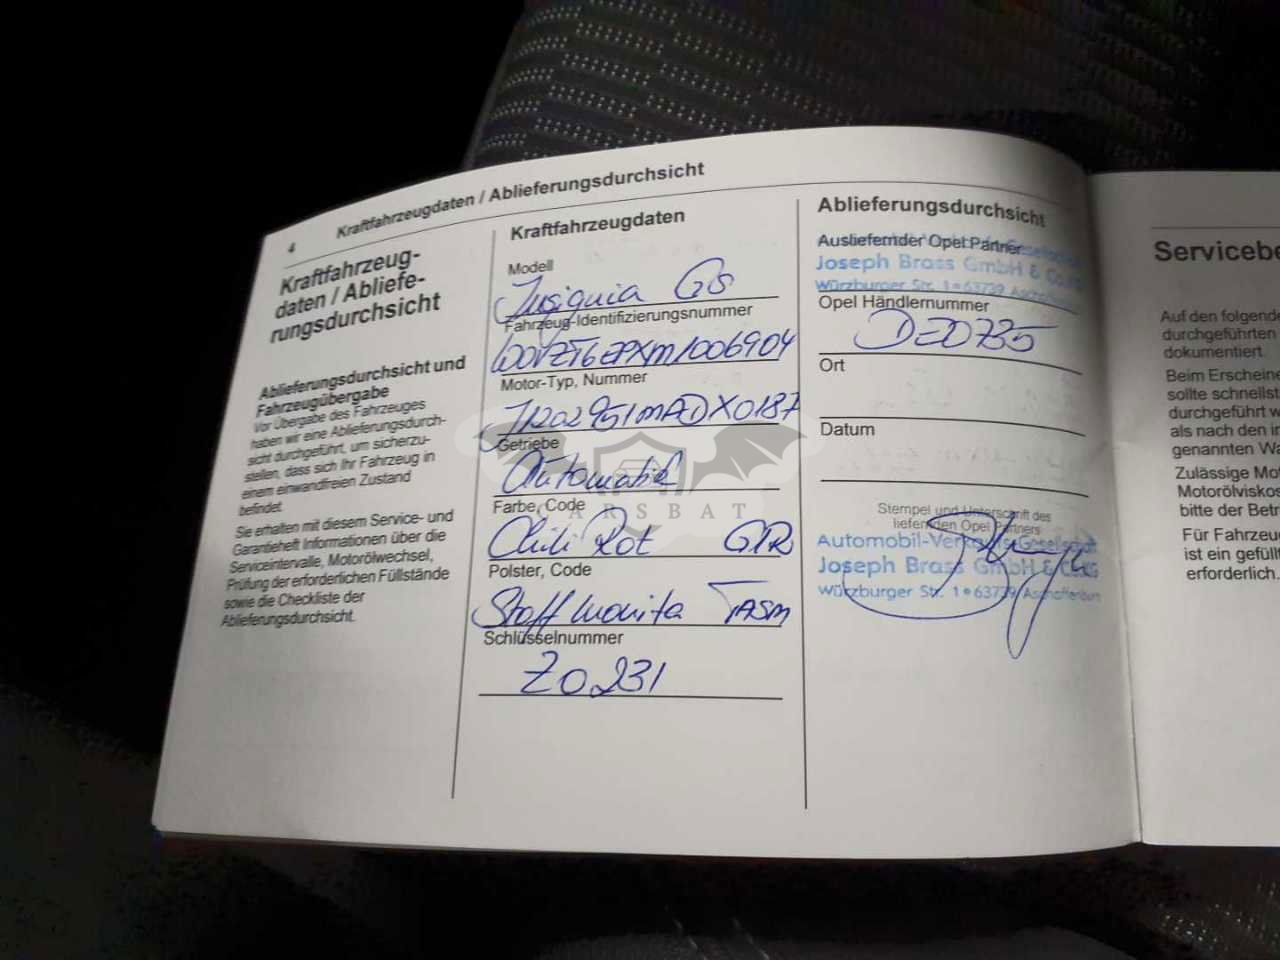 4
Kraftfahrzeugdaten / Ablieferungsdurchsicht
Kraftfahrzeug-
daten / Abliefe-
rungsdurchsicht
Ablieferungsdurchsicht und
Fahrzeugübergabe
Vor Übergabe des Fahrzeuges
haben wir eine Ablieferungsdurch-
sicht durchgeführt, um sicherzu-
stellen, dass sich Ihr Fahrzeug in
einem einwandfreien Zustand
befindet.
Sie erhalten mit diesem Service- und
Garantieheft Informationen über die
Serviceintervalle, Motorölwechsel,
Prüfung der erforderlichen Füllstände
sowie die Checkliste der
Ablieferungsdurchsicht.
Kraftfahrzeugdaten
Modell
Insignia GS
Fahrzeug-Identifizierungsnummer
W0VZT6EPXM1006904
Motor-Typ, Nummer
Getriebe
Automatik
Farbe, Code
Chili Rot GTR
Polster, Code
Stoff Monita TASM
Schlüsselnummer
Z0231
Ablieferungsdurchsicht
Ausliefernder Opel Partner
Joseph Brass GmbH & Co. KG
Würzburger Str. 1 • 63739 Aschaffenburg
Opel Händlernummer
DE0735
Ort
Datum
Stempel und Unterschrift des
liefernden Opel Partners
Automobil-Verkaufs-Gesellschaft
Joseph Brass GmbH & Co. KG
Würzburger Str. 1 • 63739 Aschaffenburg
CARSBAT
Servicebe
Auf den folgende
durchgeführten
dokumentiert.
Beim Erscheine
sollte schnellst
durchgeführt w
als nach den in
genannten Wa
Zulässige Mot
Motorölviskos
bitte der Betr
Für Fahrzeu
ist ein gefüllt
erforderlich.